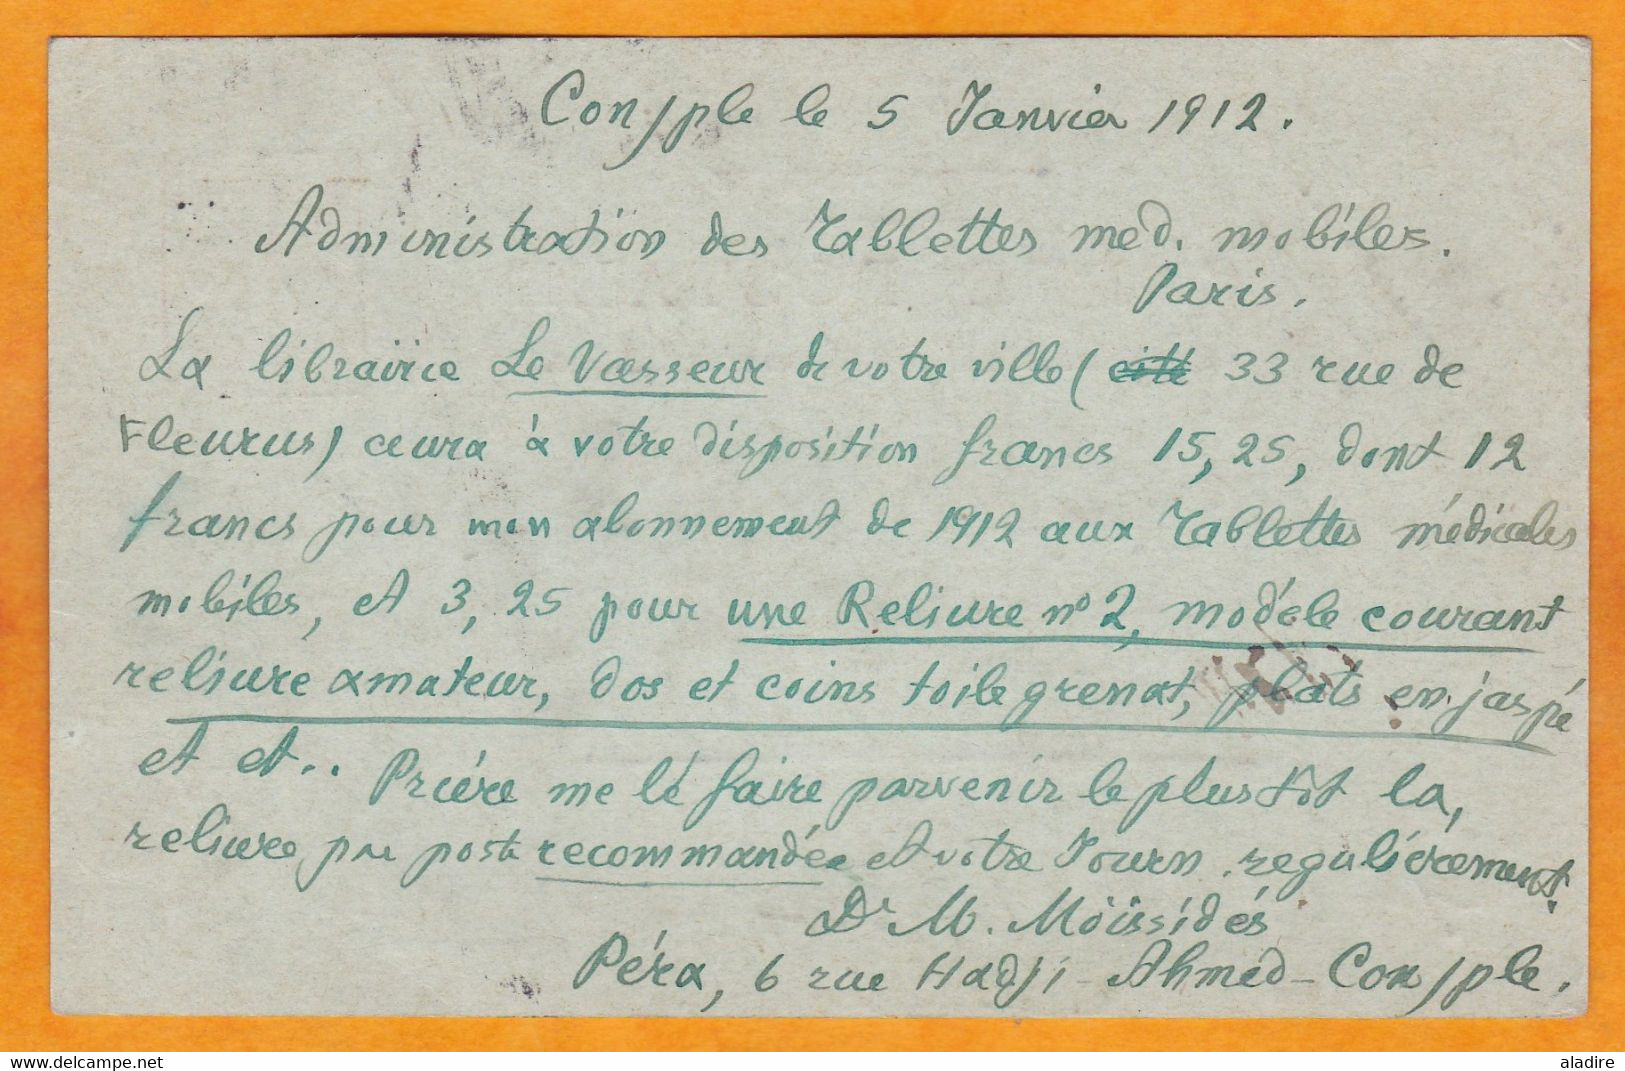 Cons/ple le 5 Janvier 1912.
Administration des Tablettes med. mobiles.
Paris.
La librairie Le Vasseur de votre ville ( 33 rue de
Fleurus) aura à votre disposition francs 15,25, dont 12
francs pour mon abonnement de 1912 aux Tablettes médicales
mobiles, et 3,25 pour une Reliure nº 2, modéle courant
reliure amateur, dos et coins toile grenat, plats en jaspé
et et.. Priére me lé faire parvenir le plus tôt la,
reliure par poste recommandée et votre Journ. reguliérement.
Dr M. Möissidés
Péra, 6 rue Hadji-Ahmed-Cons/ple.
aladire